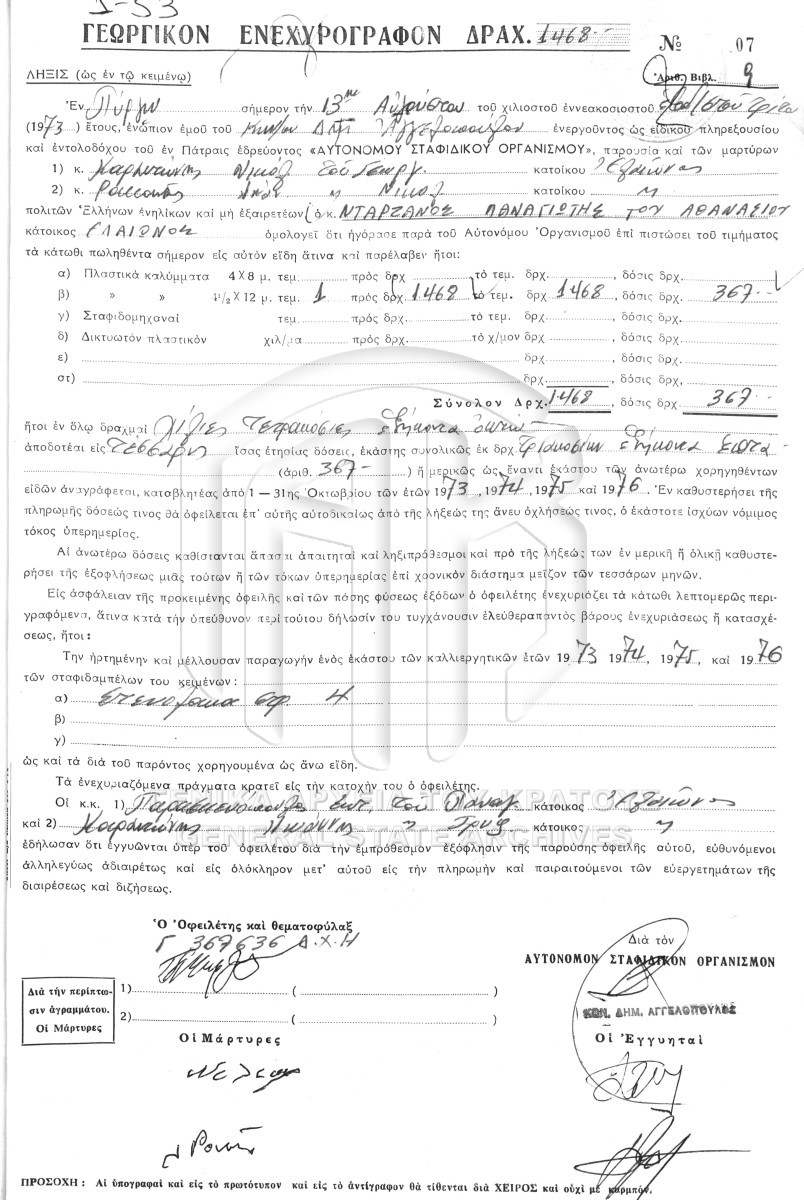 ΓΕΩΡΓΙΚΟΝ ΕΝΕΧΥΡΟΓΡΑΦΟΝ ΔΡΑΧ. 1468
Νο 07
ΛΗΞΙΣ (ὡς ἐν τῷ κειμένῳ) Ἀριθ. Βιβλ. 9
Ἐν Πύργῳ σήμερον τὴν 13ην Αὐγούστου τοῦ χιλιοστοῦ ἐννεακοσιοστοῦ
(1973) ἔτους, ἐνώπιον ἐμοῦ τοῦ Κων/νου Δημ. Ἀγγελοπούλου ἐνεργοῦντος ὡς εἰδικοῦ πληρεξουσίου
καὶ ἐντολοδόχου τοῦ ἐν Πάτραις ἑδρεύοντος «ΑΥΤΟΝΟΜΟΥ ΣΤΑΦΙΔΙΚΟΥ ΟΡΓΑΝΙΣΜΟΥ», παρουσία καὶ τῶν μαρτύρων
1) κ. Νικόλ τοῦ Γεωργ. κατοίκου Ἐλαιῶνας
2) κ. Νικολ κατοίκου "
πολιτῶν Ἑλλήνων ἐνηλίκων καὶ μὴ ἐξαιρετέων ὁ κ. ΝΤΑΡΖΑΝΟΣ ΠΑΝΑΓΙΩΤΗΣ ΤΟΥ ΑΘΑΝΑΣΙΟΥ
κάτοικος ΕΛΑΙΩΝΟΣ ὁμολογεῖ ὅτι ἠγόρασε παρὰ τοῦ Αὐτονόμου Ὀργανισμοῦ ἐπὶ πιστώσει τοῦ τιμήματος
τὰ κάτωθι πωληθέντα σήμερον εἰς αὐτὸν εἴδη ἅτινα καὶ παρέλαβεν ἤτοι:
α) Πλαστικὰ καλύμματα 4 Χ 8 μ. τεμ. πρὸς δρχ τὸ τεμ. δρχ. , δόσις δρχ.
β) » » 4 1/2 Χ 12 μ. τεμ. 1 πρὸς δρχ. 1468 τὸ τεμ. δρχ. 1468 , δόσις δρχ. 367
γ) Σταφιδομηχαναὶ τεμ. πρὸς δρχ. τὸ τεμ. δρχ. , δόσις δρχ.
δ) Δικτυωτὸν πλαστικὸν χιλ/μα πρὸς δρχ. τὸ χ/μον δρχ. , δόσις δρχ.
ε) δρχ. , δόσις δρχ.
στ) δρχ. , δόσις δρχ,
Σύνολον Δρχ. 1468 , δόσις δρχ. 367
ἤτοι ἐν ὅλῳ δραχμαὶ Χίλιες Τετρακόσιες ἑξήκοντα ὀκτώ
ἀποδοτέαι εἰς τέσσαρες ἴσας ἐτησίας δόσεις, ἑκάστης συνολικῶς ἐκ δρχ. Τριακοσίων ἑξήκοντα ἑπτά
(ἀριθ. 367 ) ἢ μερικῶς ὡς ἔναντι ἑκάστου τῶν ἀνωτέρω χορηγηθέντων
εἰδῶν ἀναγράφεται, καταβλητέας ἀπὸ 1 — 31ης Ὀκτωβρίου τῶν ἐτῶν 1973 , 1974 , 1975 καὶ 1976 . Ἐν καθυστερήσει τῆς
πληρωμῆς δόσεώς τινος θὰ ὀφείλεται ἐπ' αὐτῆς αὐτοδικαίως ἀπὸ τῆς λήξεώς της ἄνευ ὀχλήσεώς τινος, ὁ ἑκάστοτε ἰσχύων νόμιμος
τόκος ὑπερημερίας.
Αἱ ἀνωτέρω δόσεις καθίστανται ἅπασαι ἀπαιτηταὶ καὶ ληξιπρόθεσμοι καὶ πρὸ τῆς λήξεώς των ἐν μερικῇ ἢ ὁλικῇ καθυστε-
ρήσει τῆς ἐξοφλήσεως μιᾶς τούτων ἢ τῶν τόκων ὑπερημερίας ἐπὶ χρονικὸν διάστημα μεῖζον τῶν τεσσάρων μηνῶν.
Εἰς ἀσφάλειαν τῆς προκειμένης ὀφειλῆς καὶ τῶν πάσης φύσεως ἐξόδων ὁ ὀφειλέτης ἐνεχυριάζει τὰ κάτωθι λεπτομερῶς περι-
γραφόμενα, ἅτινα κατὰ τὴν ὑπεύθυνον περὶ τούτου δήλωσίν του τυγχάνουσιν ἐλεύθερα παντὸς βάρους ἐνεχυριάσεως ἢ κατασχέ-
σεως, ἤτοι:
Τὴν ἠρτημένην καὶ μέλλουσαν παραγωγὴν ἑνὸς ἑκάστου τῶν καλλιεργητικῶν ἐτῶν 1973 1974 , 1975, καὶ 1976
τῶν σταφιδαμπέλων του κειμένων:
α) στρ. 4
β)
γ)
ὡς καὶ τὰ διὰ τοῦ παρόντος χορηγουμένα ὡς ἄνω εἴδη.
Τὰ ἐνεχυριαζόμενα πράγματα κρατεῖ εἰς τὴν κατοχήν του ὁ ὀφειλέτης.
ΓΕΝΙΚΑ ΑΡΧΕΙΑ ΤΟΥ ΚΡΑΤΟΥΣ
Οἱ κ.κ. 1) τοῦ Παναγ κάτοικος Ἐλαιῶνας
GENERAL STATE ARCHIVES
καὶ 2) Ἰωάννης κάτοικος "
ἐδήλωσαν ὅτι ἐγγυῶνται ὑπὲρ τοῦ ὀφειλέτου διὰ τὴν ἐμπρόθεσμον ἐξόφλησιν τῆς παρούσης ὀφειλῆς αὐτοῦ, εὐθυνόμενοι
ἀλληλεγύως ἀδιαιρέτως καὶ εἰς ὁλόκληρον μετ' αὐτοῦ εἰς τὴν πληρωμὴν καὶ παραιτούμενοι τῶν εὐεργετημάτων τῆς
διαιρέσεως καὶ διζήσεως.
Ὁ Ὀφειλέτης καὶ θεματοφύλαξ
Γ 367636 Α.Χ.Η
Διὰ τὸν
ΑΥΤΟΝΟΜΟΝ ΣΤΑΦΙΔΙΚΟΝ ΟΡΓΑΝΙΣΜΟΝ
Διὰ τὴν περίπτω-
σιν ἀγραμμάτου.
Οἱ Μάρτυρες
1) ( )
2) ( )
ΚΩΝ. ΔΗΜ. ΑΓΓΕΛΟΠΟΥΛΟΣ
Οἱ Μάρτυρες
Οἱ Ἐγγυηταὶ
ΠΡΟΣΟΧΗ : Αἱ ὑπογραφαὶ καὶ εἰς τὸ πρωτότυπον καὶ εἰς τὸ ἀντίγραφον θὰ τίθενται διὰ ΧΕΙΡΟΣ καὶ οὐχὶ μὲ καρμπόν.